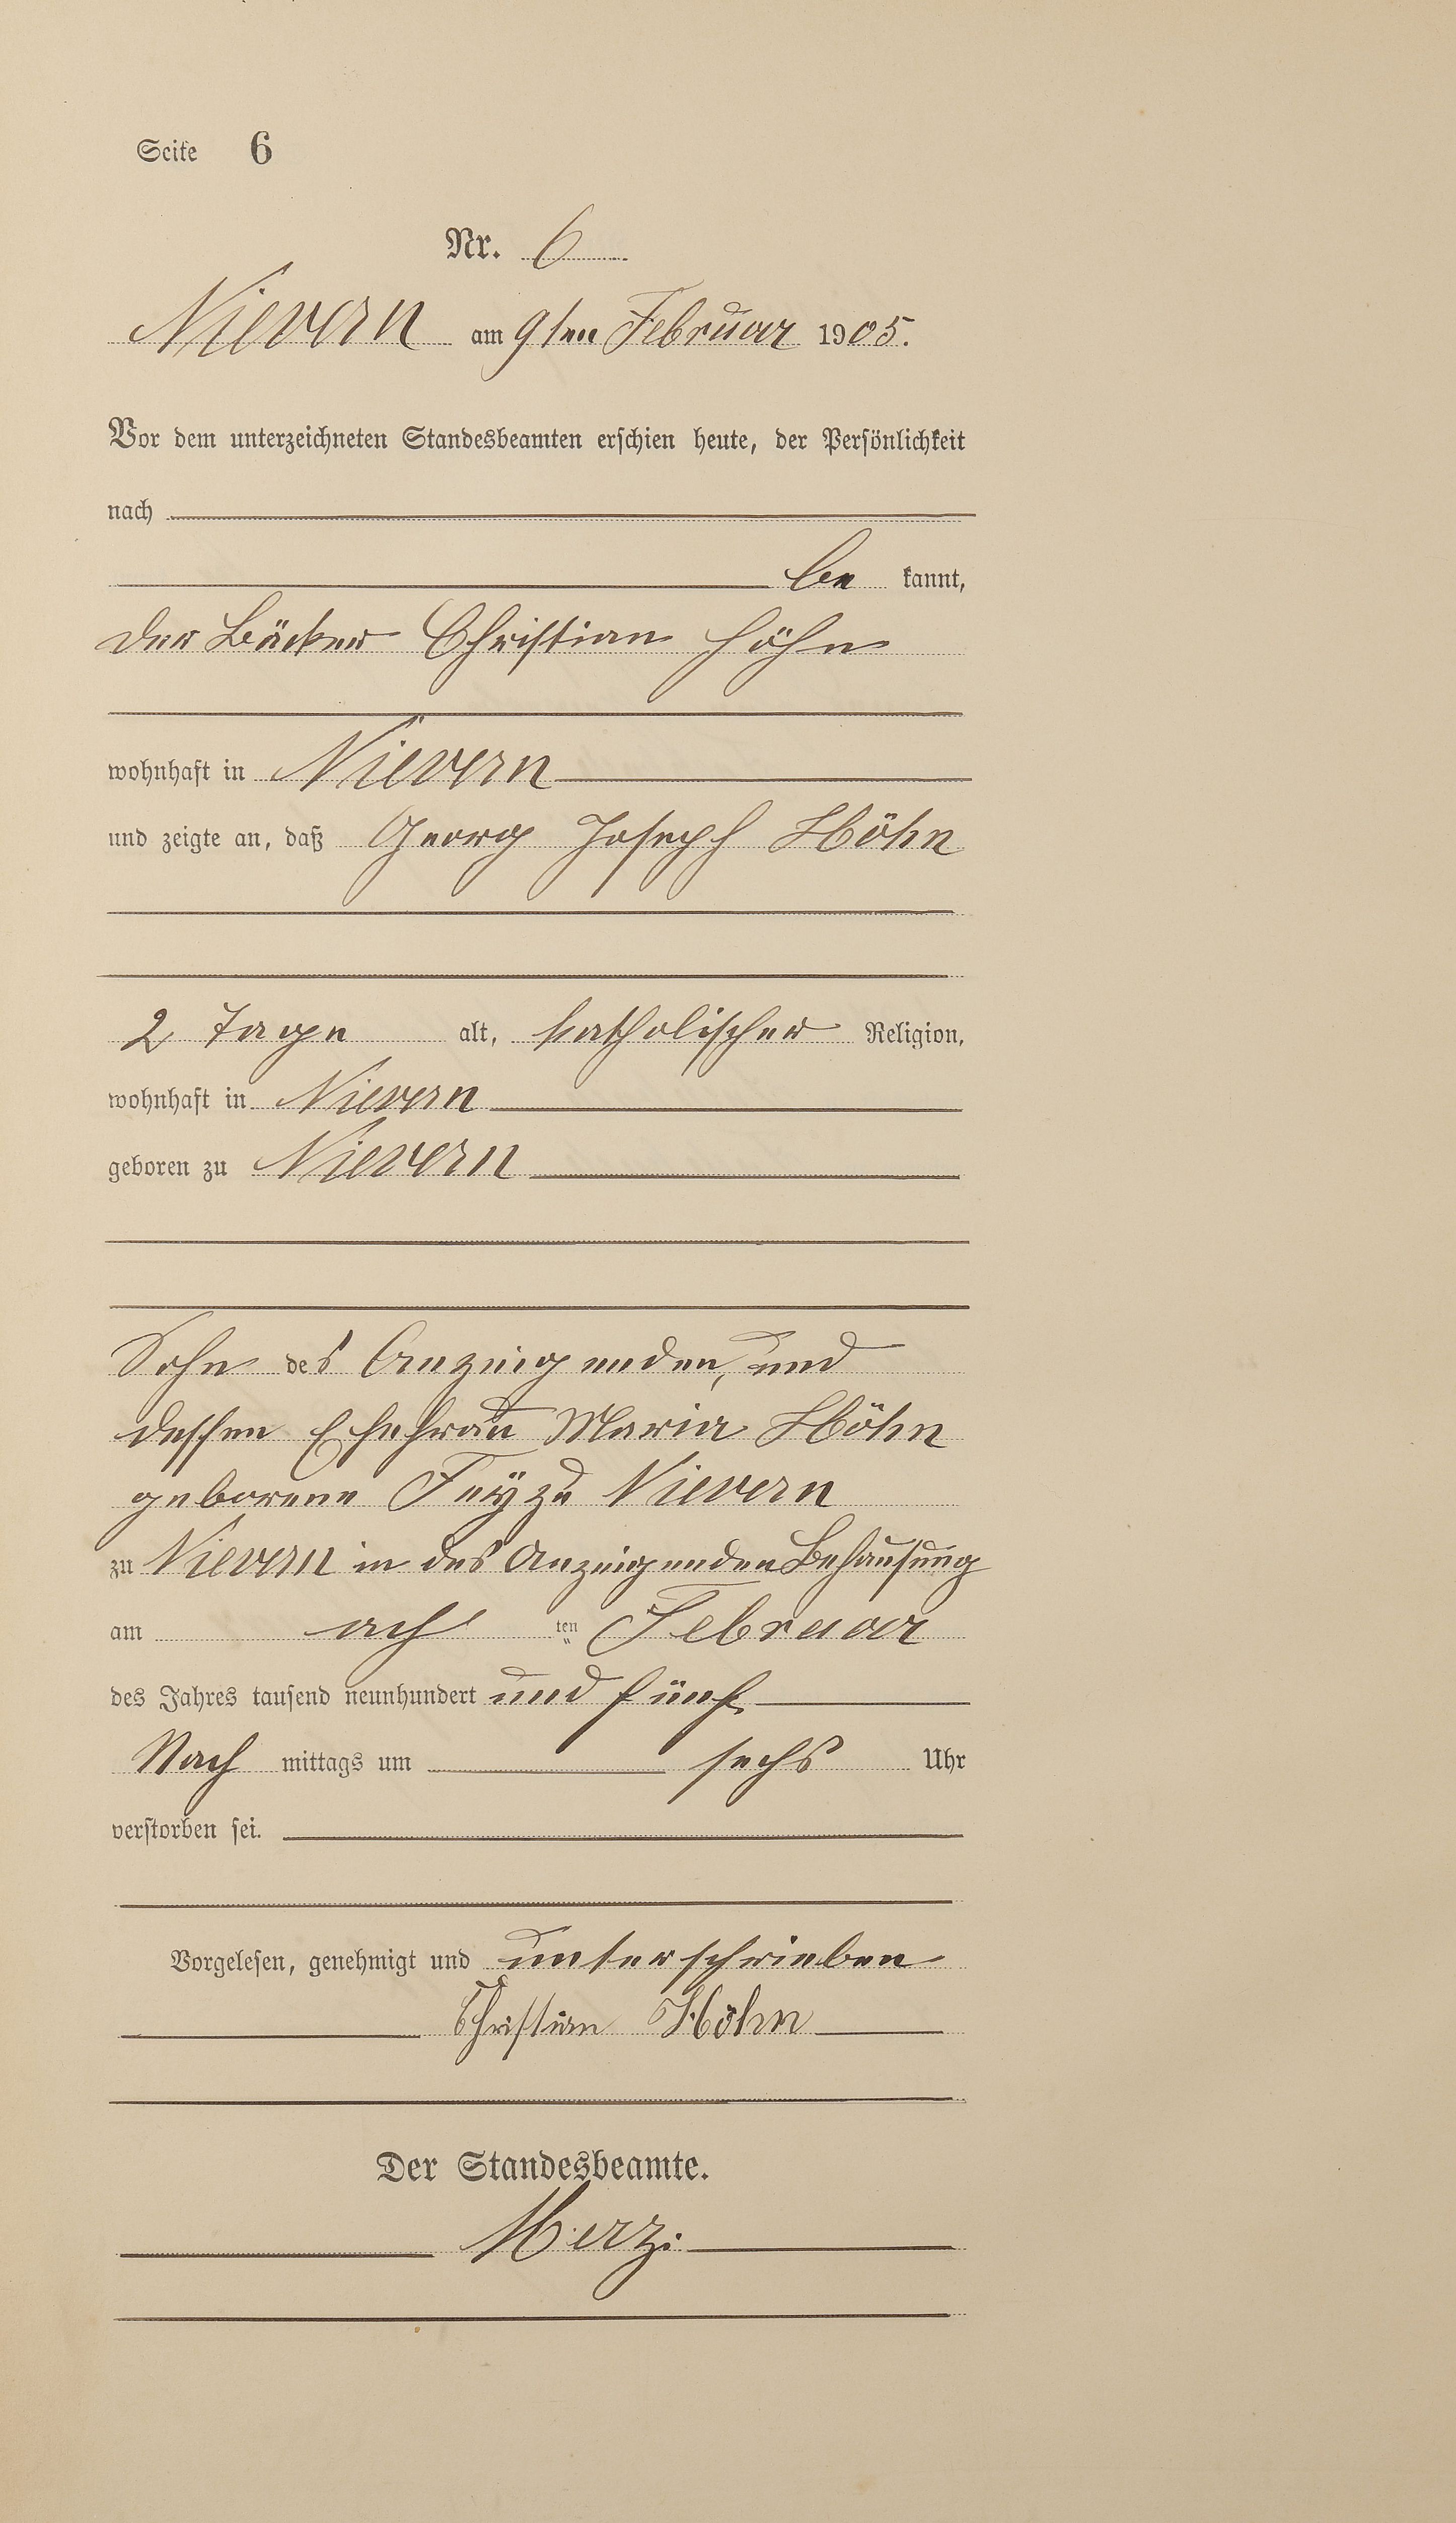 Seite 6
Nr. 6
Nievern am 9ten Februar 1905.
Vor dem unterzeichneten Standesbeamten erschien heute, der Persönlichkeit
nach
be kannt,
der Bäcker Christian Höhn
wohnhaft in Nievern
und zeigte an, daß Georg Joseph Höhn
2 Tage alt, katholischer Religion,
wohnhaft in Nievern
geboren zu Nievern
Sohn des Anzeigenden, und
dessen Ehefrau Maria Höhn
geborene Fey zu Nievern
zu Nievern in des Anzeigenden Behausung
am ach ten Februar
des Jahres tausend neunhundert und fünf
Nach mittags um sechs Uhr
verstorben sei.
Vorgelesen, genehmigt und unterschrieben
Christian Höhn
Der Standesbeamte.
Merz.